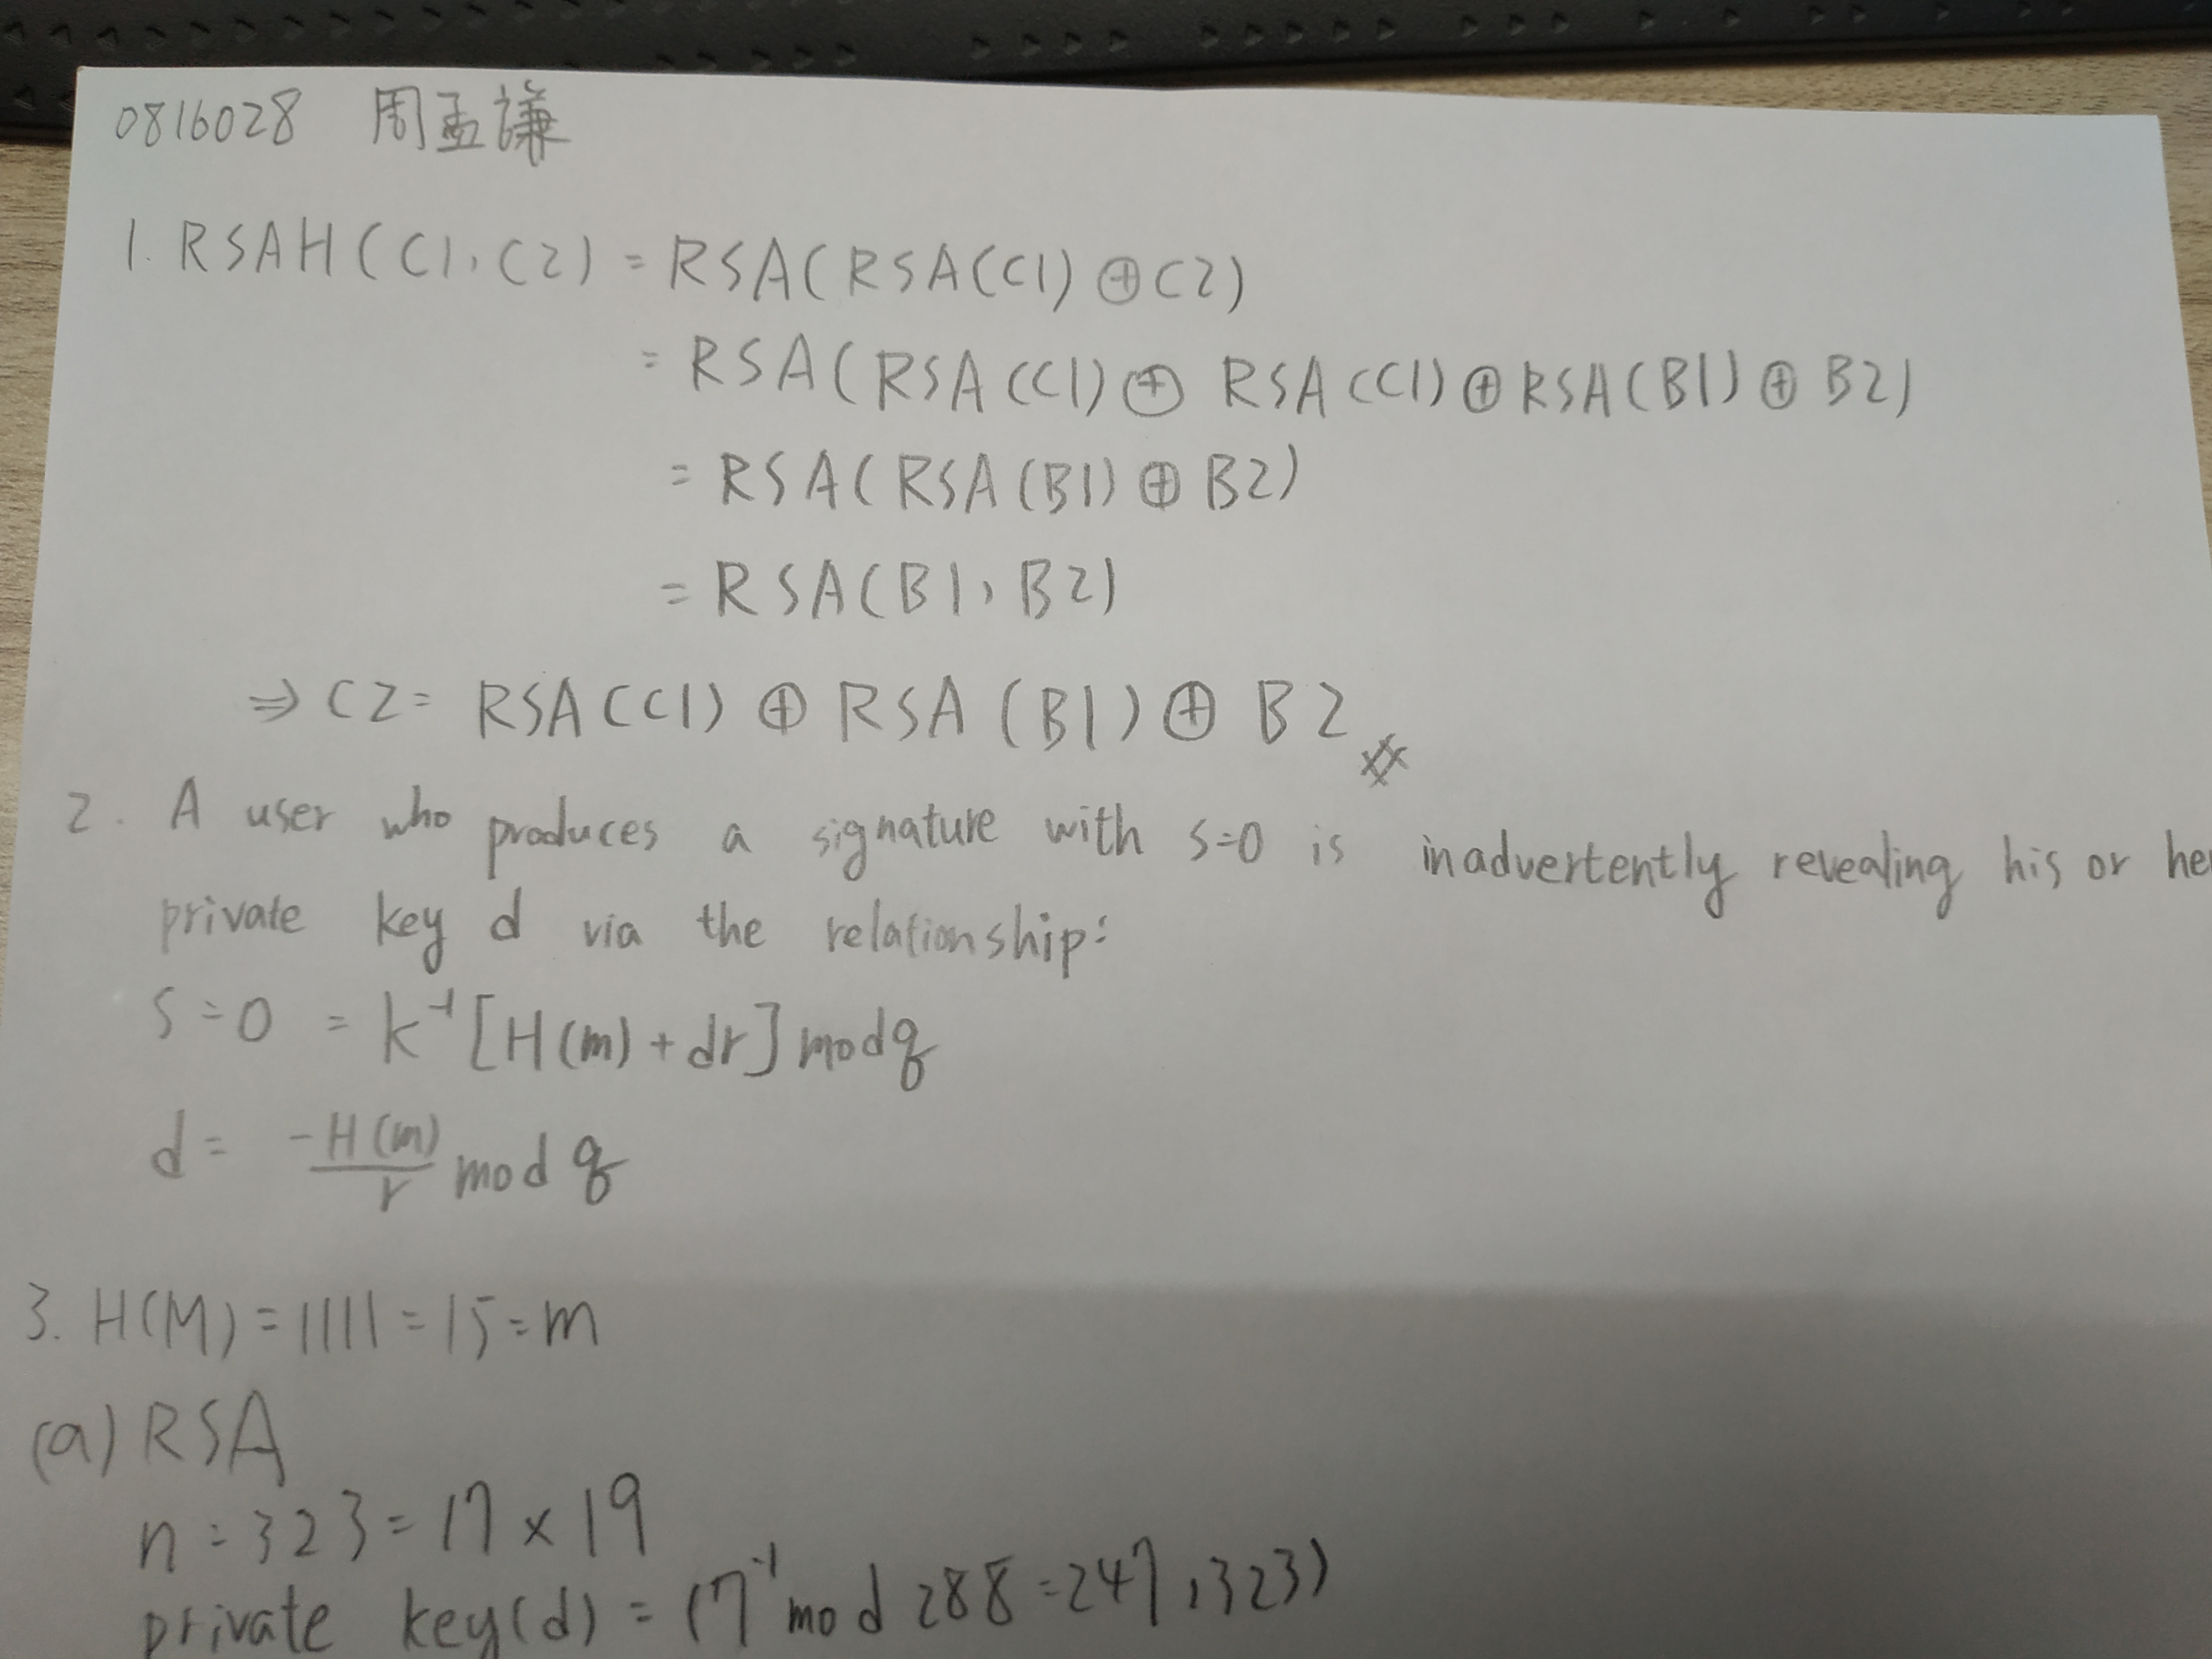 0816028 周孟謙
1. RSAH(C1,C2) = RSA(RSA(C1)⊕C2)
= RSA(RSA(C1)⊕RSA(C1)⊕RSA(B1)⊕B2)
= RSA(RSA(B1)⊕B2)
= RSA(B1,B2)
⇒ C2 = RSA(C1)⊕RSA(B1)⊕B2 #
2. A user who produces a signature with s=0 is inadvertently revealing his or he
private key d via the relationship:
S=0 = k⁻¹[H(m)+dr] mod q
d = -H(m)/r mod q
3. H(M)=1111=15=m
(a) RSA
n=323=17×19
private key(d) = (7⁻¹ mod 288=247,323)